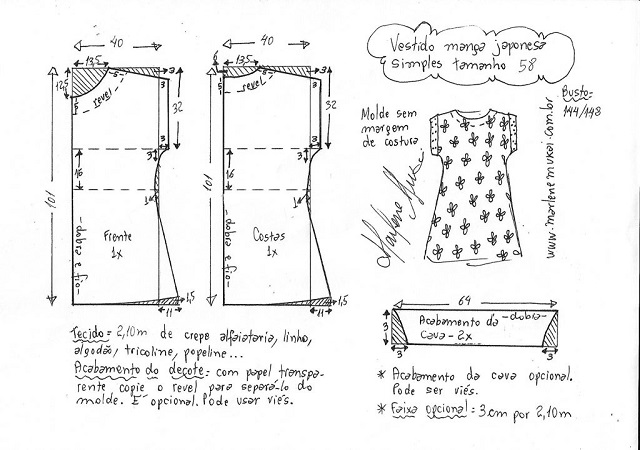 Vestido manga japonesa
simples tamanho 58
Busto:
144/148
Molde sem
margem
de costura
www.marlenemukai.com.br
40
13,5
3
12,5
5
5
revel
3
32
3
3
16
1
101
-dobra e fio-
Frente
1x
1,5
11
40
13,5
3
5
5
revel
3
32
3
3
16
1
101
-dobra e fio-
Costas
1x
1,5
11
64
Acabamento da -dobra-
cava - 2x
3
3
3
Tecido = 2,10m de crepe alfaiataria, linho,
algodão, tricoline, popeline...
Acabamento do decote = com papel transpa-
rente copie o revel para separá-lo do
molde. É opcional. Pode usar viés.
* Acabamento da cava opcional.
Pode ser viés.
* Faixa opcional = 3cm por 2,10m